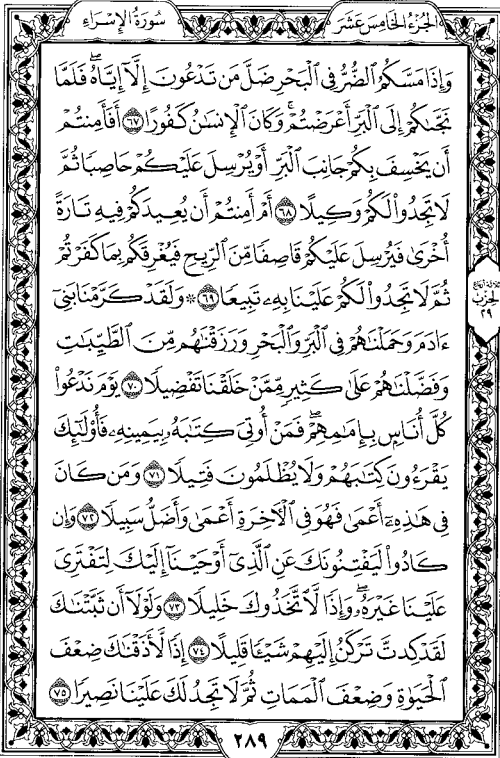 الجُزْءُ الخَامِسَ عَشَرَ
سُورَةُ الإِسْرَاءِ
وَإِذَا مَسَّكُمُ ٱلضُّرُّ فِي ٱلْبَحْرِ ضَلَّ مَن تَدْعُونَ إِلَّآ إِيَّاهُۖ فَلَمَّا
نَجَّىٰكُمْ إِلَى ٱلْبَرِّ أَعْرَضْتُمْۚ وَكَانَ ٱلْإِنسَٰنُ كَفُورًا ٦٧ أَفَأَمِنتُمْ
أَن يَخْسِفَ بِكُمْ جَانِبَ ٱلْبَرِّ أَوْ يُرْسِلَ عَلَيْكُمْ حَاصِبًا ثُمَّ
لَا تَجِدُوا۟ لَكُمْ وَكِيلًا ٦٨ أَمْ أَمِنتُمْ أَن يُعِيدَكُمْ فِيهِ تَارَةً
أُخْرَىٰ فَيُرْسِلَ عَلَيْكُمْ قَاصِفًا مِّنَ ٱلرِّيحِ فَيُغْرِقَكُم بِمَا كَفَرْتُمْ
ثُمَّ لَا تَجِدُوا۟ لَكُمْ عَلَيْنَا بِهِۦ تَبِيعًا ٦٩ ۞ وَلَقَدْ كَرَّمْنَا بَنِيٓ
ءَادَمَ وَحَمَلْنَٰهُمْ فِي ٱلْبَرِّ وَٱلْبَحْرِ وَرَزَقْنَٰهُم مِّنَ ٱلطَّيِّبَٰتِ
وَفَضَّلْنَٰهُمْ عَلَىٰ كَثِيرٍ مِّمَّنْ خَلَقْنَا تَفْضِيلًا ٧٠ يَوْمَ نَدْعُوا۟
كُلَّ أُنَاسٍۭ بِإِمَٰمِهِمْۖ فَمَنْ أُوتِيَ كِتَٰبَهُۥ بِيَمِينِهِۦ فَأُو۟لَٰٓئِكَ
يَقْرَءُونَ كِتَٰبَهُمْ وَلَا يُظْلَمُونَ فَتِيلًا ٧١ وَمَن كَانَ
فِي هَٰذِهِۦٓ أَعْمَىٰ فَهُوَ فِي ٱلْأٓخِرَةِ أَعْمَىٰ وَأَضَلُّ سَبِيلًا ٧٢ وَإِن
كَادُوا۟ لَيَفْتِنُونَكَ عَنِ ٱلَّذِيٓ أَوْحَيْنَآ إِلَيْكَ لِتَفْتَرِيَ
عَلَيْنَا غَيْرَهُۥۖ وَإِذًا لَّٱتَّخَذُوكَ خَلِيلًا ٧٣ وَلَوْلَآ أَن ثَبَّتْنَٰكَ
لَقَدْ كِدتَّ تَرْكَنُ إِلَيْهِمْ شَيْـًٔا قَلِيلًا ٧٤ إِذًا لَّأَذَقْنَٰكَ ضِعْفَ
ٱلْحَيَوٰةِ وَضِعْفَ ٱلْمَمَاتِ ثُمَّ لَا تَجِدُ لَكَ عَلَيْنَا نَصِيرًا ٧٥
حِزْب
٢٩
٢٨٩